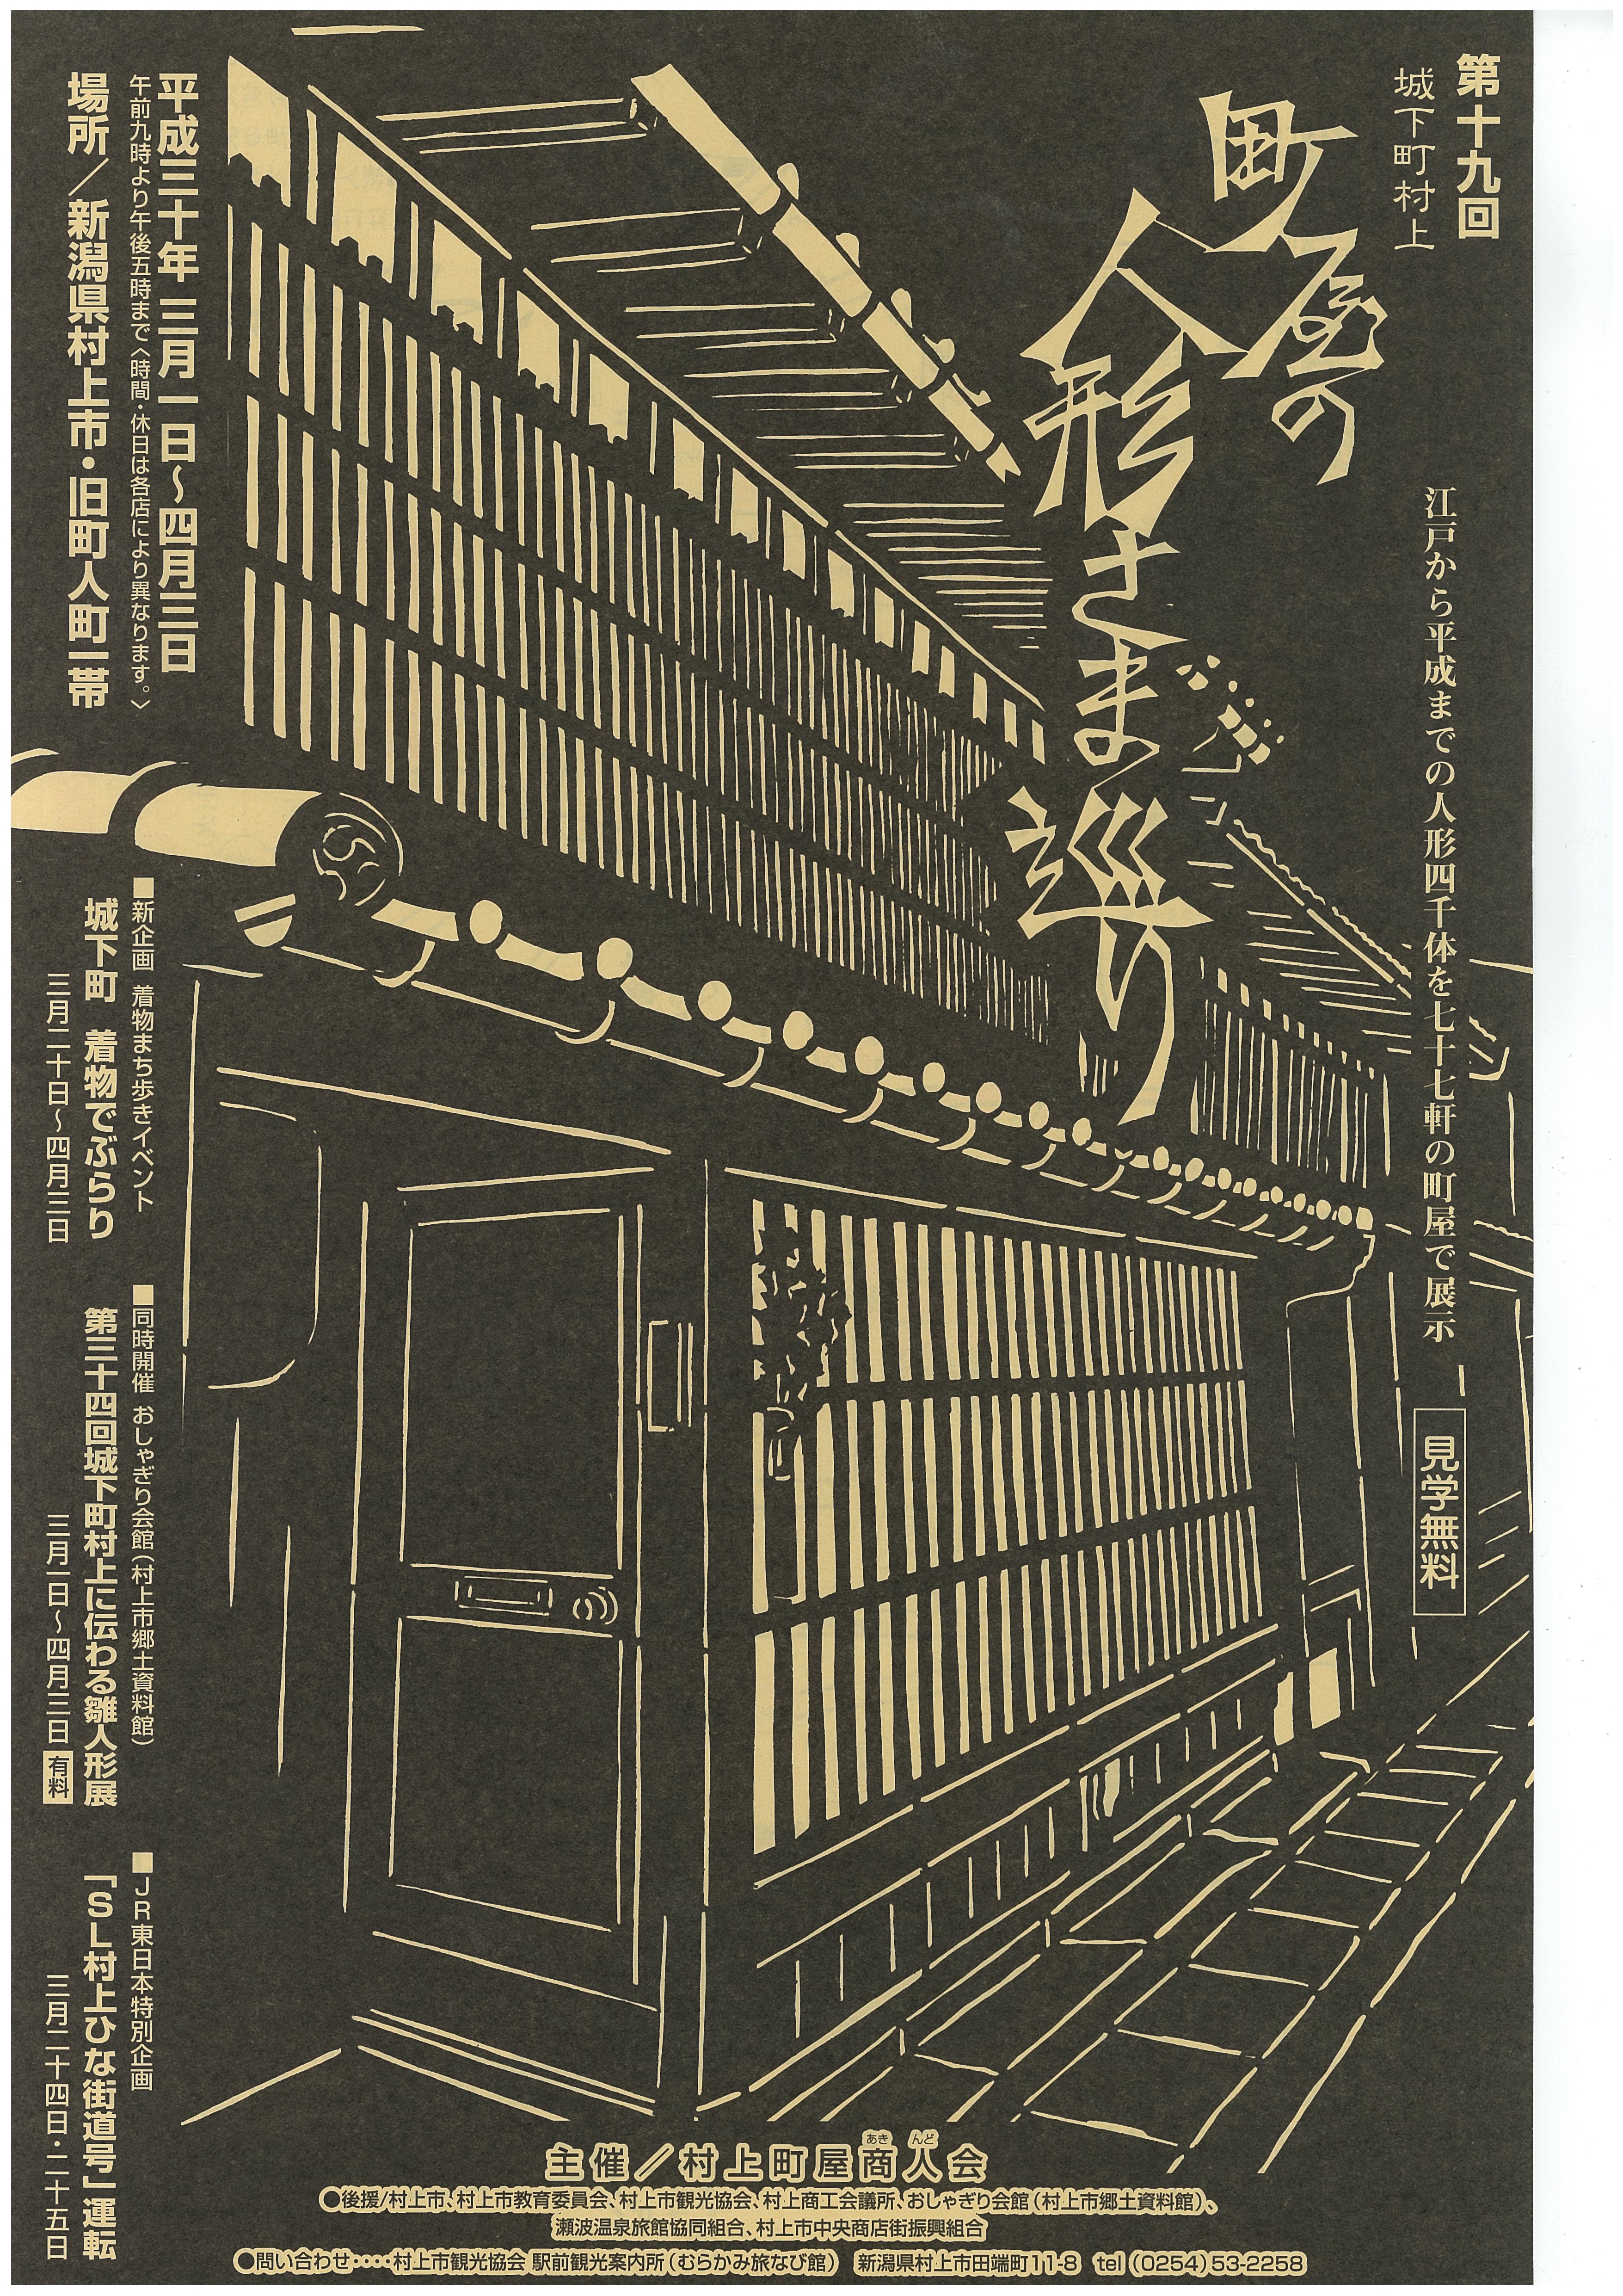 第十九回
城下町村上
町屋の
人形さま巡り
江戸から平成までの人形四千体を七十七軒の町屋で展示
見学無料
平成三十年 三月一日～四月三日
午前九時より午後五時まで〈時間・休日は各店により異なります。〉
場所／新潟県村上市・旧町人町一帯
■新企画 着物まち歩きイベント
城下町 着物でぶらり
三月二十日～四月三日
■同時開催 おしゃぎり会館（村上市郷土資料館）
第三十四回城下町村上に伝わる雛人形展
三月一日～四月三日 有料
■JR東日本特別企画
「SL村上ひな街道号」運転
三月二十四日・二十五日
あき んど
主催／村上町屋商人会
●後援/村上市、村上市教育委員会、村上市観光協会、村上商工会議所、おしゃぎり会館（村上市郷土資料館）、
瀬波温泉旅館協同組合、村上市中央商店街振興組合
●問い合わせ‥‥村上市観光協会 駅前観光案内所（むらかみ旅なび館） 新潟県村上市田端町11-8 tel（0254）53-2258